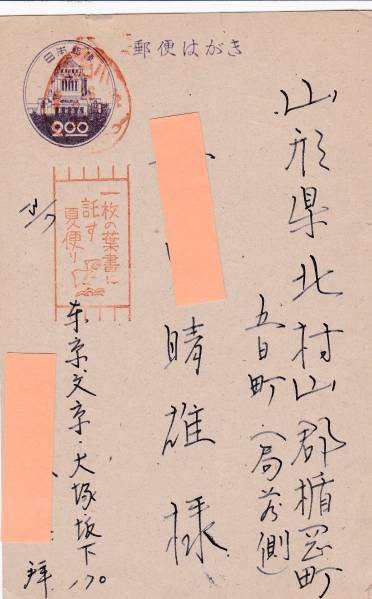 郵便はがき
日本郵便
2.00
山形県北村山郡楯岡町
五日町(局前側)
晴雄様
一枚の葉書に
託す
夏便り
东京・文京・大塚坂下
170
拝